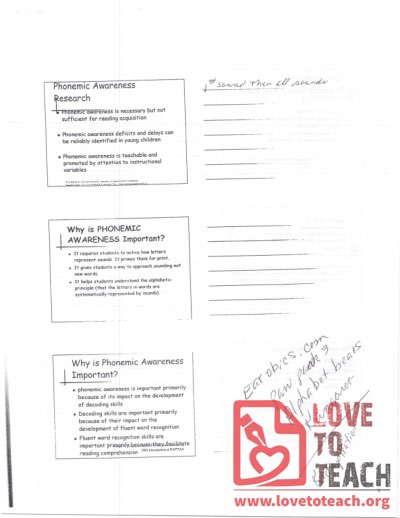 Phonemic Awareness
Research
Phonemic awareness is necessary but not
sufficient for reading acquisition
Phonemic awareness deficits and delays can
be reliably identified in young children
Phonemic awareness is teachable and
promoted by attention to instructional
variables
1st sound then all sounds
Why is PHONEMIC
AWARENESS Important?
It requires students to notice how letters
represent sounds. It primes them for print.
It gives students a way to approach sounding out
new words.
It helps students understand the alphabetic
principle (that the letters in words are
systematically represented by sounds).
Why is Phonemic Awareness
Important?
phonemic awareness is important primarily
because of its impact on the development
of decoding skills
Decoding skills are important primarily
because of their impact on the
development of fluent word recognition
Fluent word recognition skills are
important primarily because they facilitate
reading comprehension
Earobics.com
Paw park 3
Alphabet bears
LOVE
TO
TEACH
www.lovetoteach.org